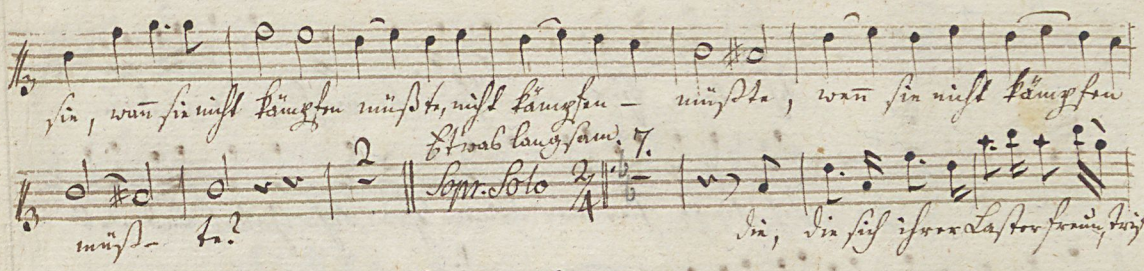 sie, wañ sie nicht kämpfen müßte, nicht kämpfen – müßte, weñ sie nicht kämpfen
Etwas langsam. 7.
2 Sopr. Solo 2/4
müß– te? die, die sich ihrer Laster freun,